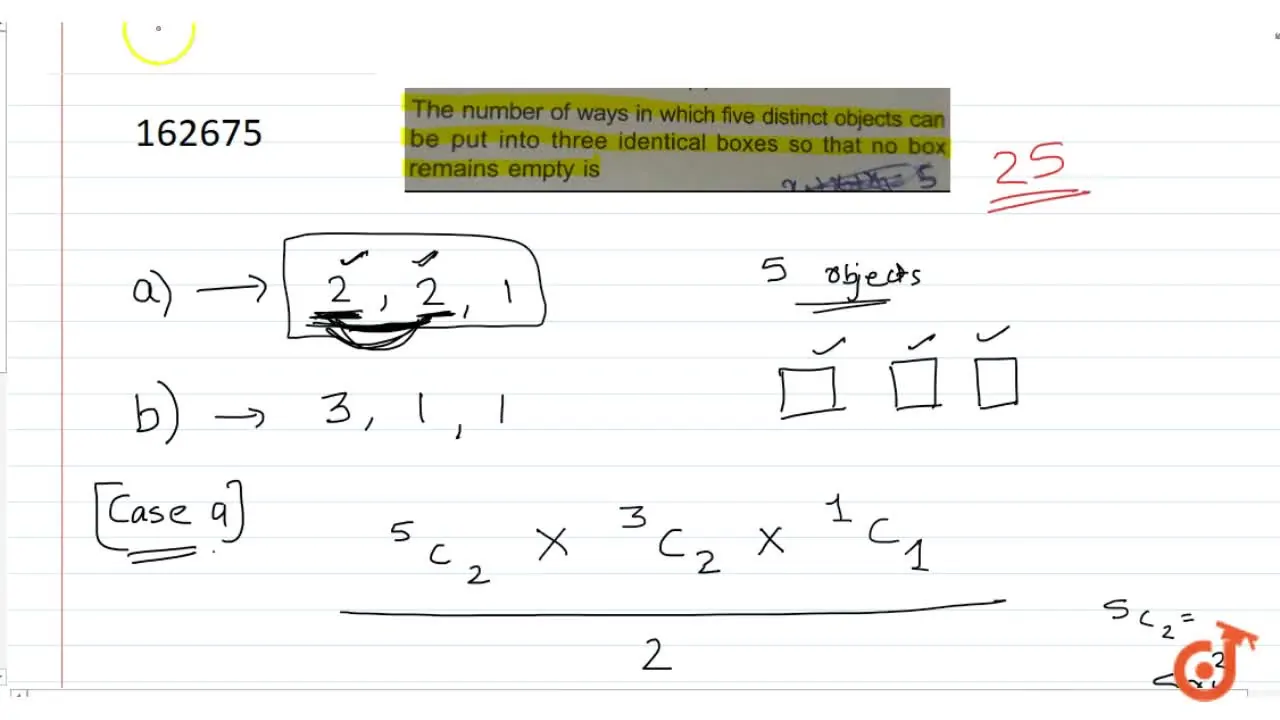 162675
The number of ways in which five distinct objects can
be put into three identical boxes so that no box
remains empty is
= 5
25
a) → 2, 2, 1
5 objects
b) → 3, 1, 1
[Case a]
⁵C₂ × ³C₂ × ¹C₁
2
⁵C₂ =